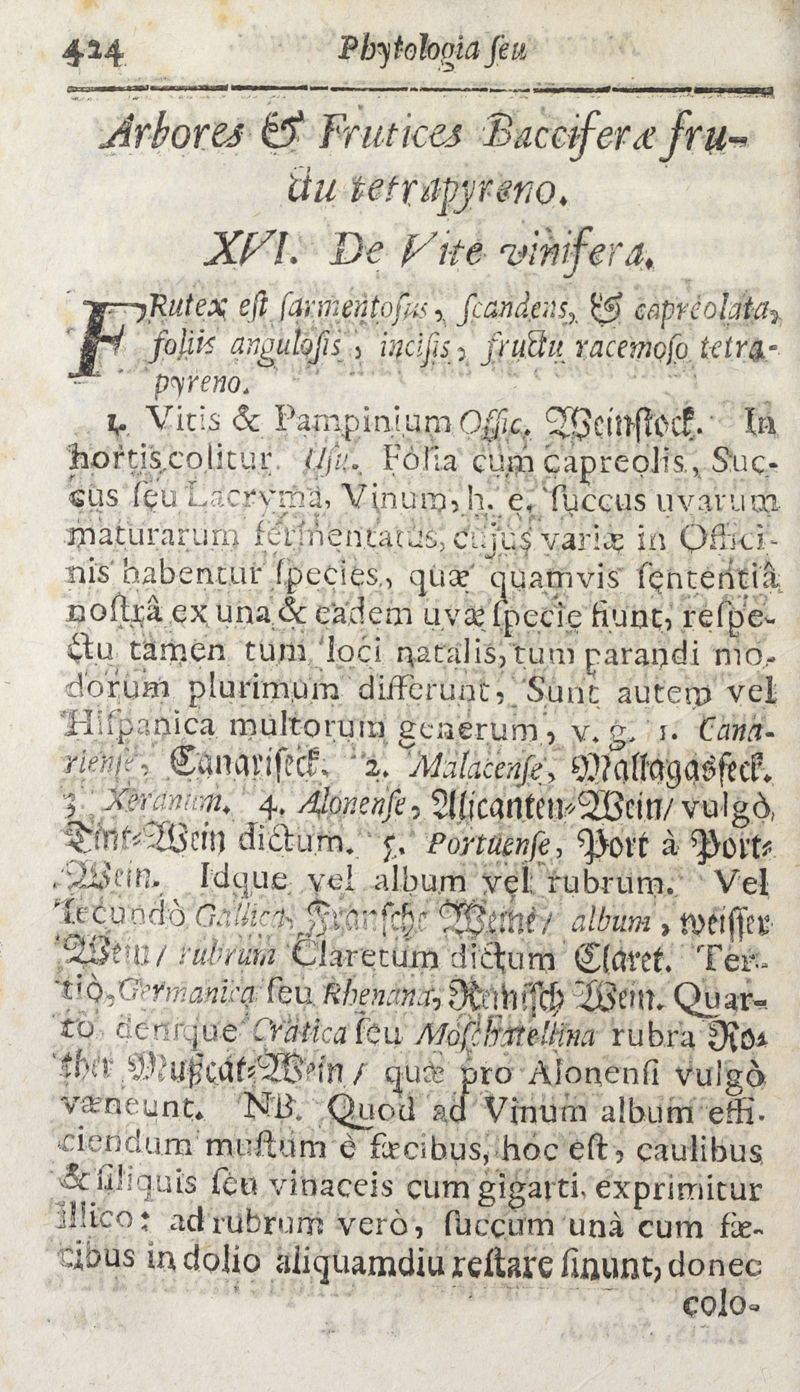 424 Phytologia ſeu
Arbores & Frutices Bacciferæ fru-
ctu tetrapyreno.
XVI. De Vite vinifera.
FRutex eſt ſarmentoſus, ſcandens, & capreolata,
foliis anguloſis, inciſis, fructu racemoſo tetra-
pyreno.
1. Vitis & Pampinium Offic. Weinſtock. In
hortis colitur. Uſu. Folia cum capreolis, Suc-
cus ſeu Lacryma, Vinum, h. e. ſuccus uvarum
maturarum fermentatus, cujus variæ in Offici-
nis habentur ſpecies, quæ quamvis ſententiâ
noſtrâ ex una & eadem uvæ ſpecie fiunt, reſpe-
ctu tamen tum loci natalis, tum parandi mo-
dorum plurimum differunt, Sunt autem vel
Hiſpanica multorum generum, v. g. 1. Cana-
rienſe, Canariſeck. 2. Malacenſe, Mallagasſeck.
3. Xeranum. 4. Alonenſe, Allicanten-Wein/ vulgò,
Tint-Wein dictum. 5. Portuenſe, Port à Port-
Wein. Idque vel album vel rubrum. Vel
ſecundò Gallica, Franſche Weine/ album, weiſſer
Wein/ rubrum Claretum dictum Claret. Ter-
tiò, Germanica ſeu Rhenana, Rheniſch Wein. Quar-
tò denique Cratica ſeu Moſchatellina rubra Ro-
ther Mußcat-Wein/ quæ pro Alonenſi vulgò
væneunt. NB. Quod ad Vinum album effi-
ciendum muſtum è fæcibus, hoc eſt, caulibus
& ſiliquis ſeu vinaceis cum gigarti, exprimitur
illico: ad rubrum verò, ſuccum unà cum fæ-
cibus in dolio aliquamdiu reſtare ſinunt, donec
colo-